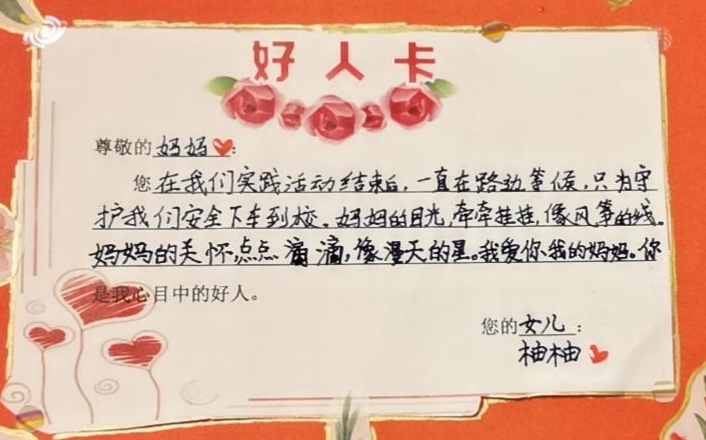 好人卡
尊敬的妈妈：
您在我们实践活动结束后，一直在路边等候，只为守
护我们安全下车到校。妈妈的目光，牵牵挂挂，像风筝的线。
妈妈的关怀，点点滴滴，像漫天的星。我爱你、我的妈妈。你
是我心目中的好人。
您的女儿：
柚柚